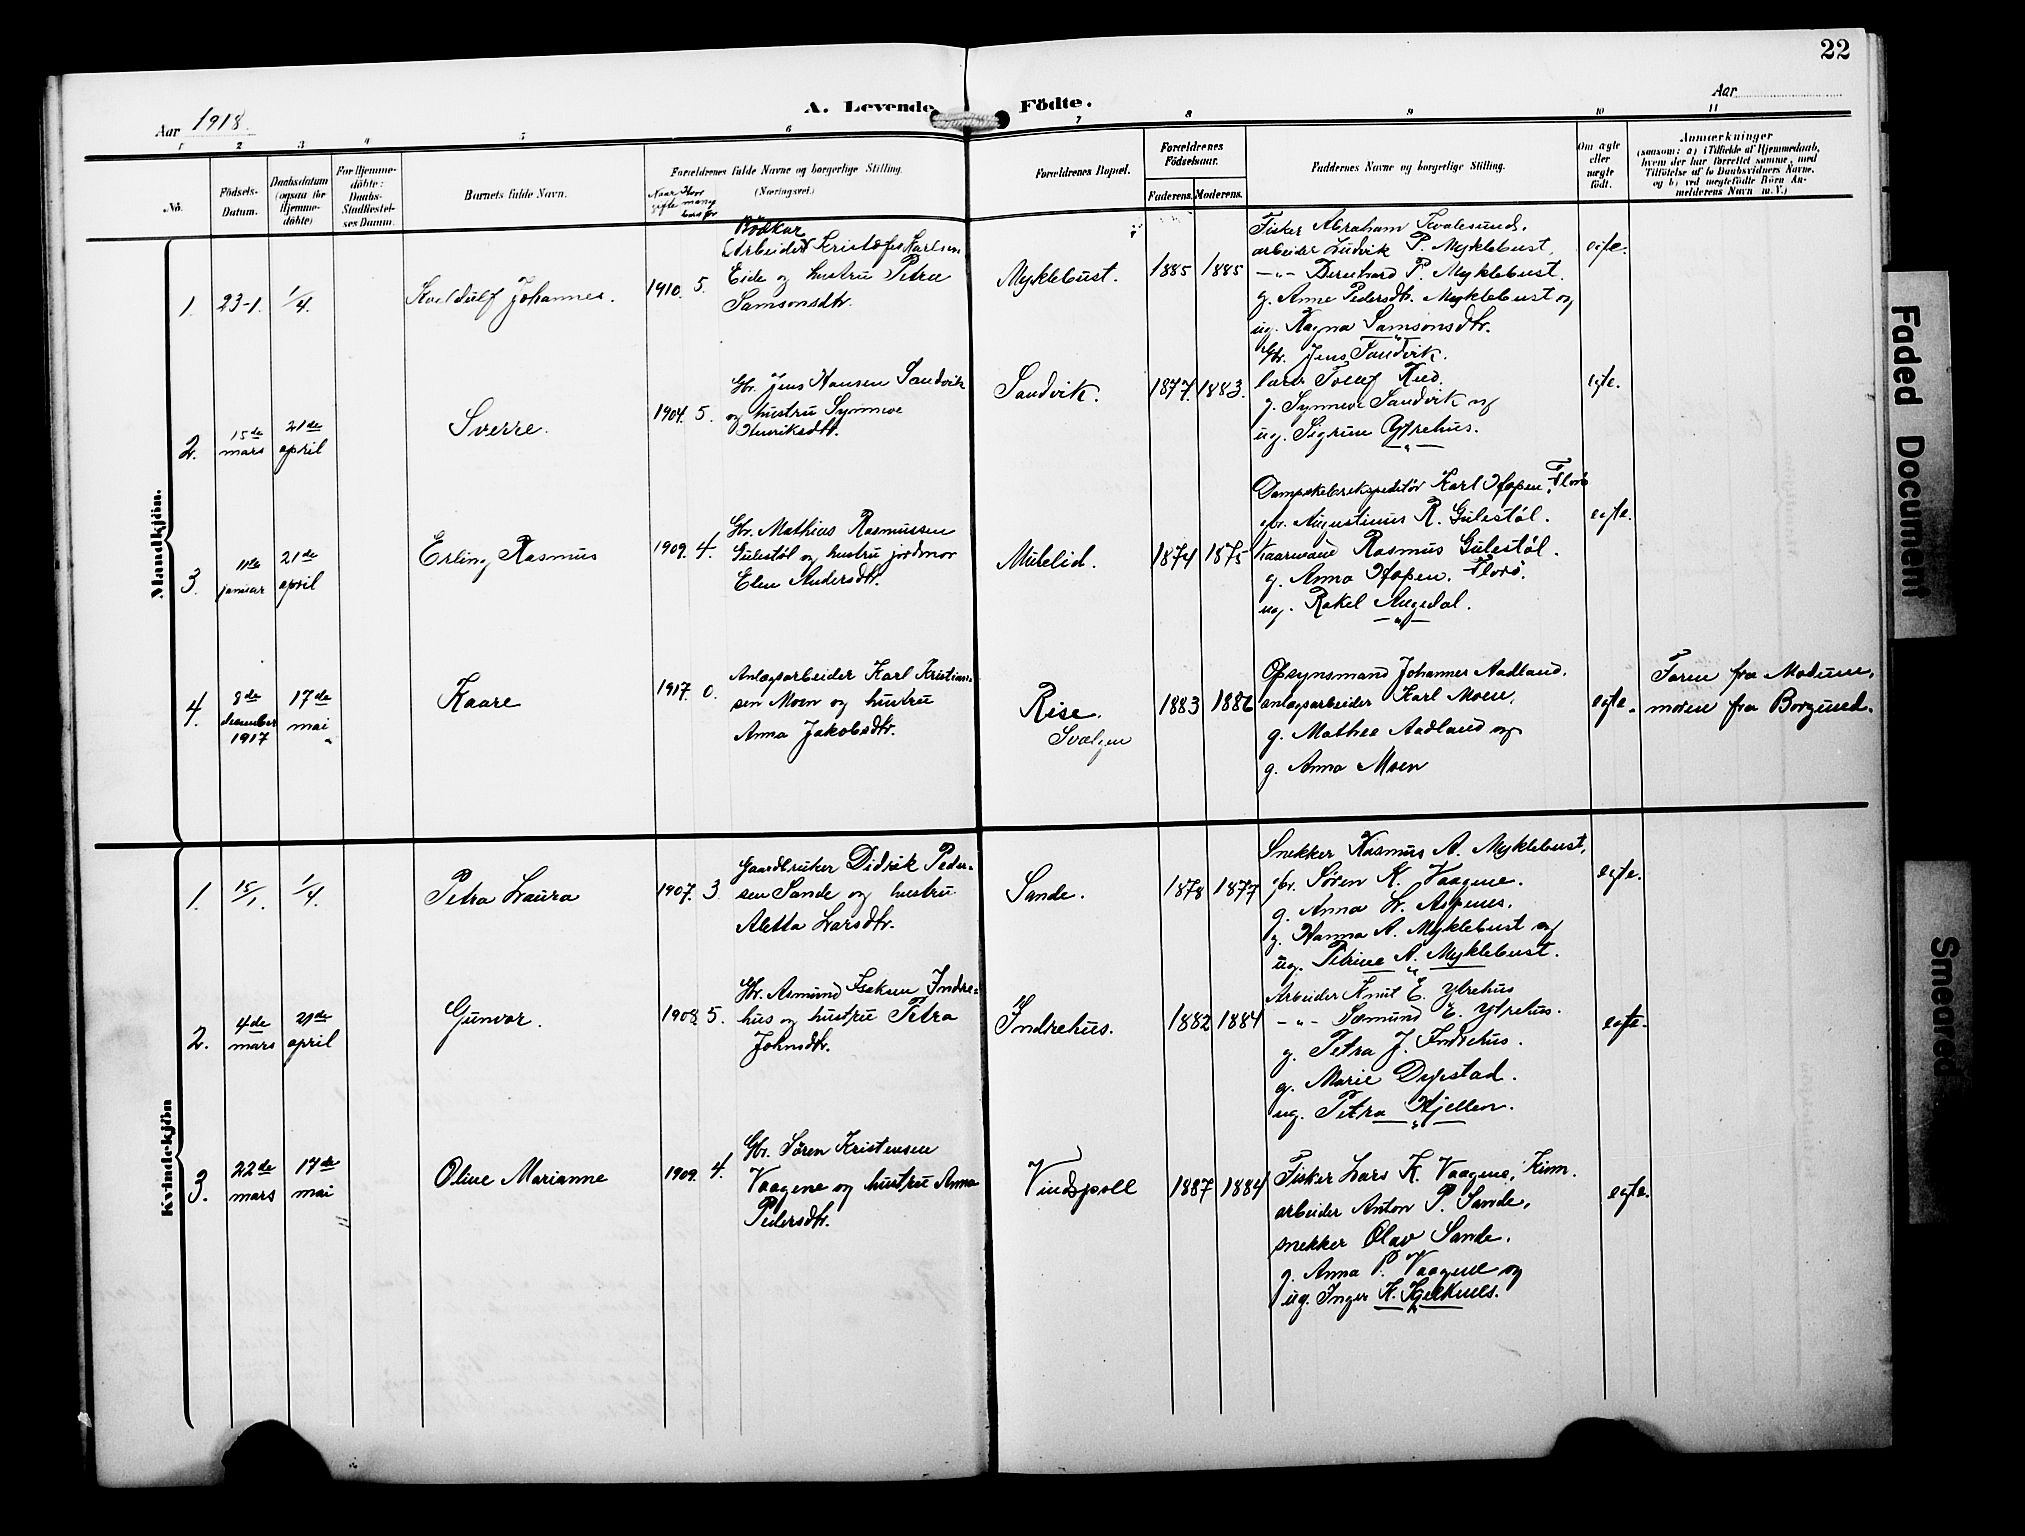 22
A. Levende Födte.
Aar 1918.
Aar
1 2 3 4 5 6 7 8 9 10 11
No.
Födsels-
Datum.
Daabsdatum
(ogsaa for
Hjemme-
döbte)
For Hjemme-
döbte:
Daabs-
Stadfæstel-
ses Datum.
Barnets fulde Navn.
Forældrenes fulde Navne og borgerlige Stilling
(Næringsvei.)
Naar gifte
Hvor mange
barn før
Forældrenes Bopæl.
Forældrenes
Födselsaar.
Faderens. Moderens.
Faddernes Navne og borgerlige Stilling.
Om ægte
eller
uægte
födt.
Anmærkninger
(saasom: a) i Tilfælde af Hjemmedaab,
hvem der har forrettet samme, med
Tilföielse af to Daabsvidners Navne,
og b) ved uægtefödte Börn An-
melderens Navn m. V.)
Mandkjön.
1. 23-1. 1/4. Kveldulf Johannes. 1910. 5.
Bödker
(Arbeider) Kristofer Karlsen
Eide og hustru Petra
Samsonsdtr.
Myklebust. 1885 1885
Fisker Abraham Kvalesund,
arbeider Ludvik P. Myklebust,
-"- Bernhard P. Myklebust.
g. Anne Pedersdtr. Myklebust og
ug. Ragna Samsonsdtr.
egte.
2. 15de mars 21de april Sverre. 1904. 5.
Gbr. Jens Hansen Sandvik
og hustru Synneve
Henriksdtr.
Sandvik. 1877. 1883.
Gbr. Jens Sandvik.
lærer Tollef Hied.
g. Synneve Sandvik og
ug. Sigrun Ytrehus.
egte.
3. 11te januar 21de april Erling Rasmus 1909. 4.
Gbr. Mathias Rasmussen
Gulestøl og hustru jordmor
Elen Andersdtr.
Mulelid. 1874 1875
Dampskibsekspeditör Karl Hopen, Florö
gbr. Augustinus R. Gulestøl.
kaarmand Rasmus Gulestøl.
g. Anna Hopen, Florö.
ug. Rakel Augedal.
egte.
4. 8de december 1917 17de mai Kaare 1917. 0.
Anlægsarbeider Karl Kristian-
sen Moen og hustru
Anna Jakobsdtr.
Rise.
Svælgen
1883 1882
Opsynsmand Johannes Aadland.
anlægsarbeider Karl Moen,
g. Mathea Aadland og
g. Anna Moen
egte.
Faren fra Modum,
moren fra Borgund.
Kvindekjön
1. 15/1. 1/4. Petra Laura 1907. 3
Gaardbruker Didrik Peder-
sen Sande og hustru
Aletta Larsdtr.
Sande. 1878 1877
Snekker Rasmus A. Myklebust,
gbr. Søren K. Vaagene.
g. Anna L. Aspenes.
g. Hanna A. Myklebust og
ug. Petrine A. Myklebust.
egte.
2. 4de mars 21de april Gunvor. 1908. 5.
Gbr. Asmund Isaksen Indre-
hus og hustru Petra
Johnsdtr.
Indrehus. 1882 1884
Arbeider Knut E. Ytrehus
-"- Sæmund E. Ytrehus.
g. Petra J. Indrehus.
g. Marie Dypestad.
ug. Petra Hjellen.
egte.
3. 22de mars 17de mai Oline Marianne 1909. 4.
Gbr. Søren Kristensen
Vaagene og hustru Anna
Pedersdtr.
Vindspoll 1887 1884
Fisker Lars K. Vaagene, Kinn.
arbeider Anton P. Sande,
snekker Olav Sande.
g. Anna P. Vaagene og
ug. Inger K. Kjelknes.
egte.
Faded Document
Smeared